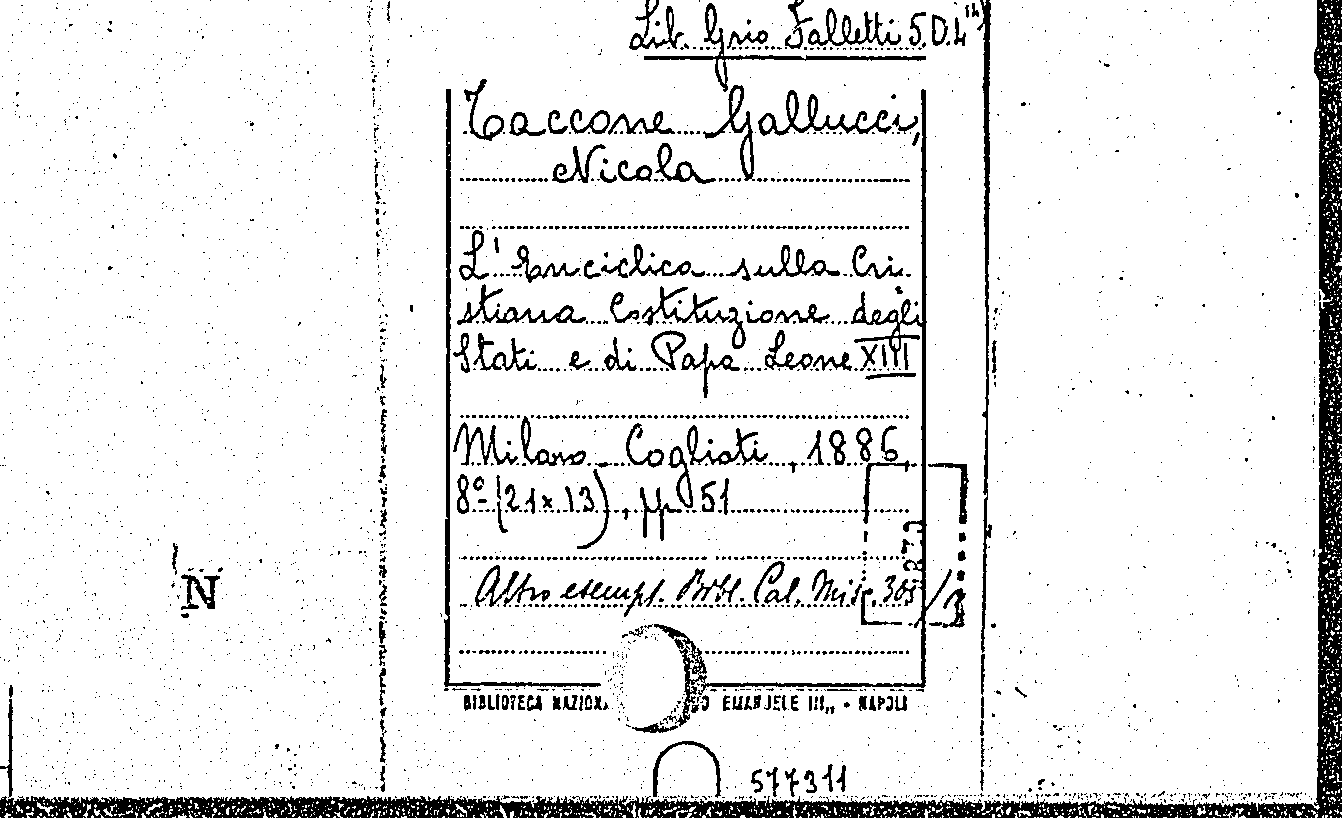 Lib. Grio Falletti 5.D.4
Taccone Gallucci,
Nicola
L' Enciclica sulla Cri-
stiana Costituzione degli
Stati e di Papa Leone XIII
Milano. Cogliati, 1886,
8º (21x13), pp 51
Altro esempl. Bibl. Cal. Misc.
BIBLIOTECA EMANUELE III,, - NAPOLI
N
577311